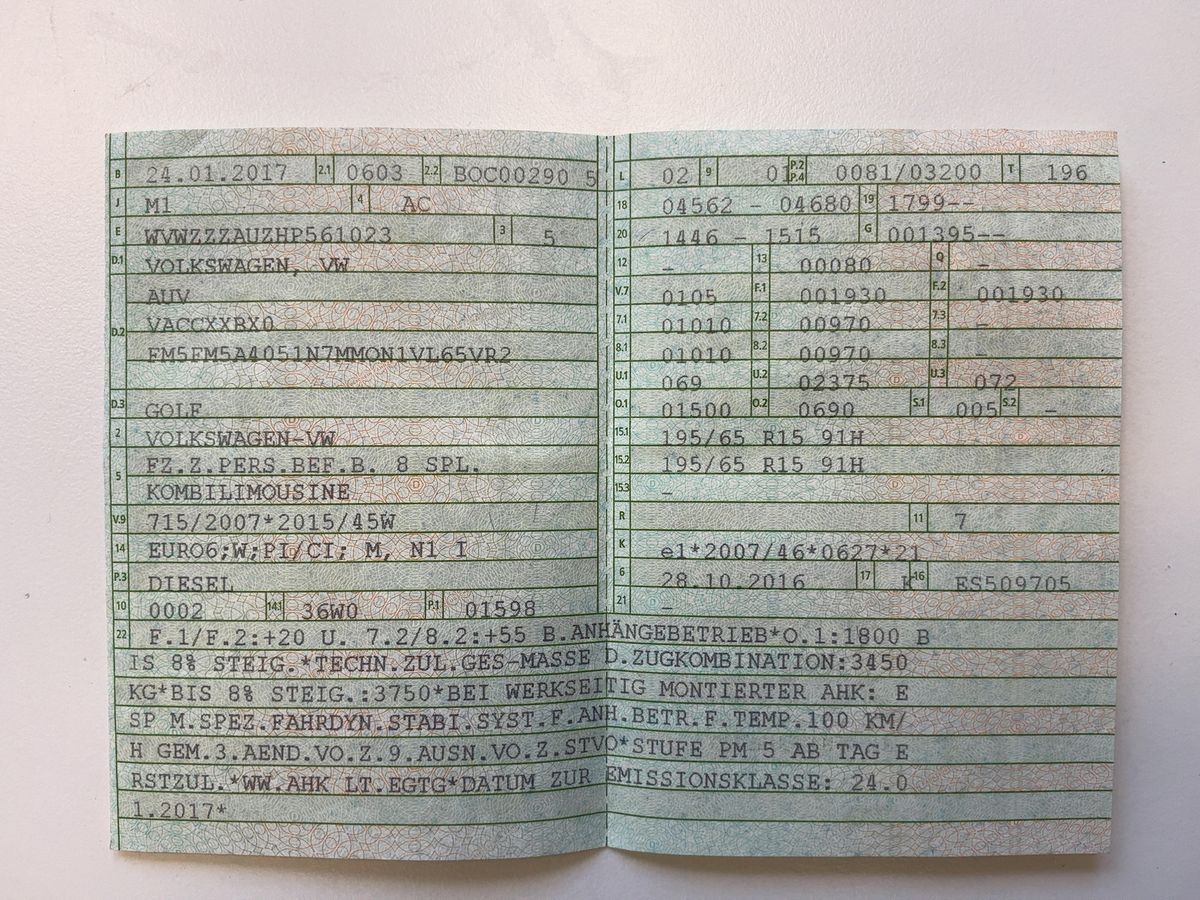 B 24.01.2017 2.1 0603 2.2 BOC00290 5
J M1 4 AC
E WVWZZZAUZHP561023 3 5
D.1 VOLKSWAGEN, VW
AUV
D.2 VACCXXRX0
FM5FM5A4051N7MMON1VL65VR2
D.3 GOLF
2 VOLKSWAGEN-VW
5 FZ.Z.PERS.BEF.B. 8 SPL.
KOMBILIMOUSINE
V.9 715/2007*2015/45W
14 EURO6;W;PI/CI; M, N1 I
P.3 DIESEL
10 0002 14.1 36W0 P.1 01598
L 02 9 01 P.2 P.4 0081/03200 T 196
18 04562 - 04680 19 1799--
20 1446 - 1515 G 001395--
12 - 13 00080 Q -
V.7 0105 F.1 001930 F.2 001930
7.1 01010 7.2 00970 7.3 -
8.1 01010 8.2 00970 8.3 -
U.1 069 U.2 02375 U.3 072
O.1 01500 O.2 0690 S.1 005 S.2 -
15.1 195/65 R15 91H
15.2 195/65 R15 91H
15.3 -
R 11 7
K e1*2007/46*0627*21
6 28.10.2016 17 K 16 ES509705
21 -
22 F.1/F.2:+20 U. 7.2/8.2:+55 B.ANHÄNGEBETRIEB*O.1:1800 B
IS 8% STEIG.*TECHN.ZUL.GES-MASSE D.ZUGKOMBINATION:3450
KG*BIS 8% STEIG.:3750*BEI WERKSEITIG MONTIERTER AHK: E
SP M.SPEZ.FAHRDYN.STABI.SYST.F.ANH.BETR.F.TEMP.100 KM/
H GEM.3.AEND.VO.Z.9.AUSN.VO.Z.STVO*STUFE PM 5 AB TAG E
RSTZUL.*WW.AHK LT.EGTG*DATUM ZUR EMISSIONSKLASSE: 24.0
1.2017*